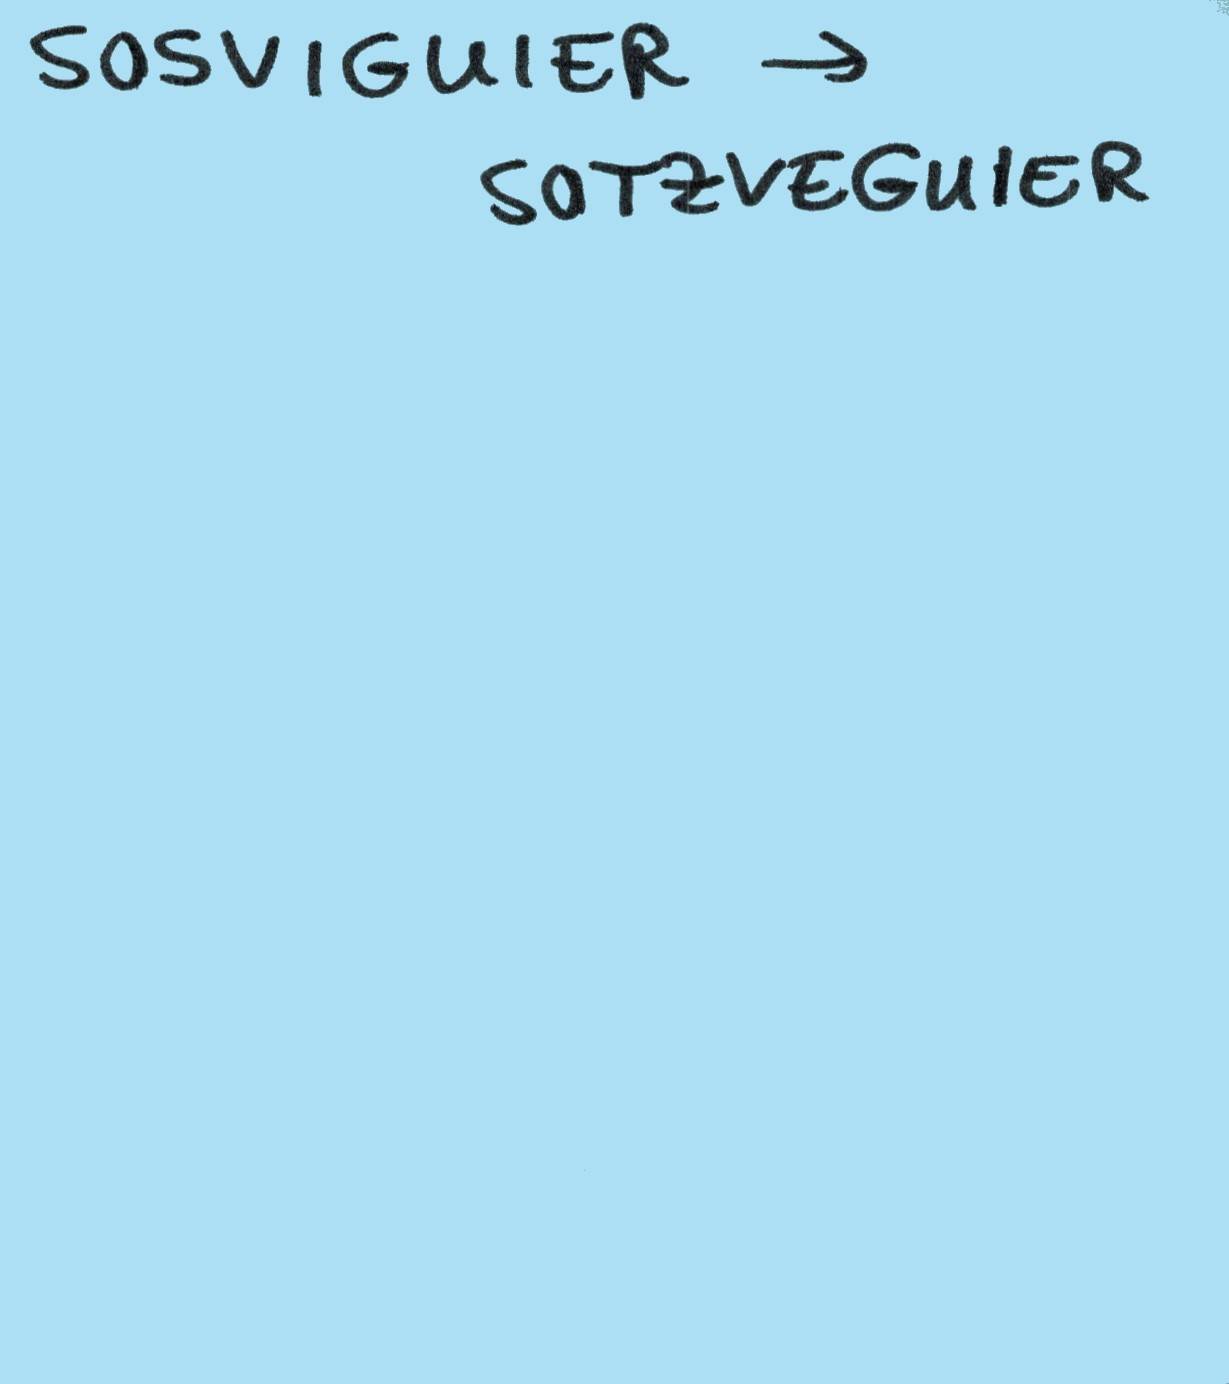 SOSVIGUIER →
SOTZVEGUIER